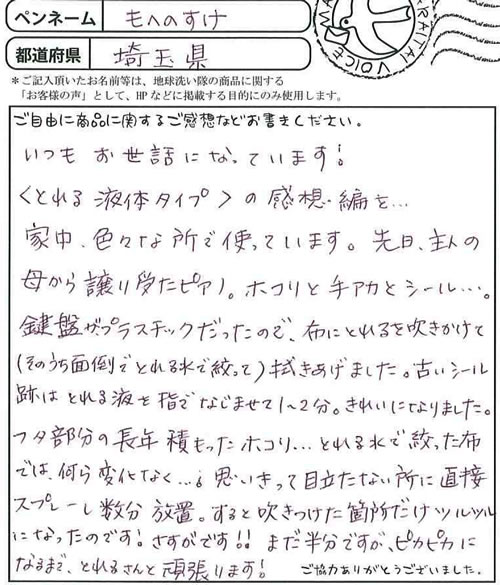 ペンネーム もへのすけ
都道府県 埼玉県
＊ご記入頂いたお名前等は、地球洗い隊の商品に関する
「お客様の声」として、HPなどに掲載する目的にのみ使用します。
ご自由に商品に関するご感想などお書きください。
いつも お世話になっています!
<とれる 液体タイプ> の 感想・編を…
家中、色々な所で使っています。先日、主人の
母から譲り受たピアノ。ホコリと手アカとシール…。
鍵盤がプラスチックだったので、布にとれるを吹きかけて
(そのうち面倒でとれる水で絞って)拭きあげました。古いシール
跡は とれる液を指でなじませて1〜2分。きれいになりました。
フタ部分の長年積もったホコリ…とれる水で絞った布
では、何ら変化なく…。思いきって目立たない所に直接
スプレーし数分放置。すると吹きつけた箇所だけツルツル
になったのです! さすがです!! まだ半分ですが、ピカピカに
なるまで、とれるさんと頑張ります!
ご協力ありがとうございました。